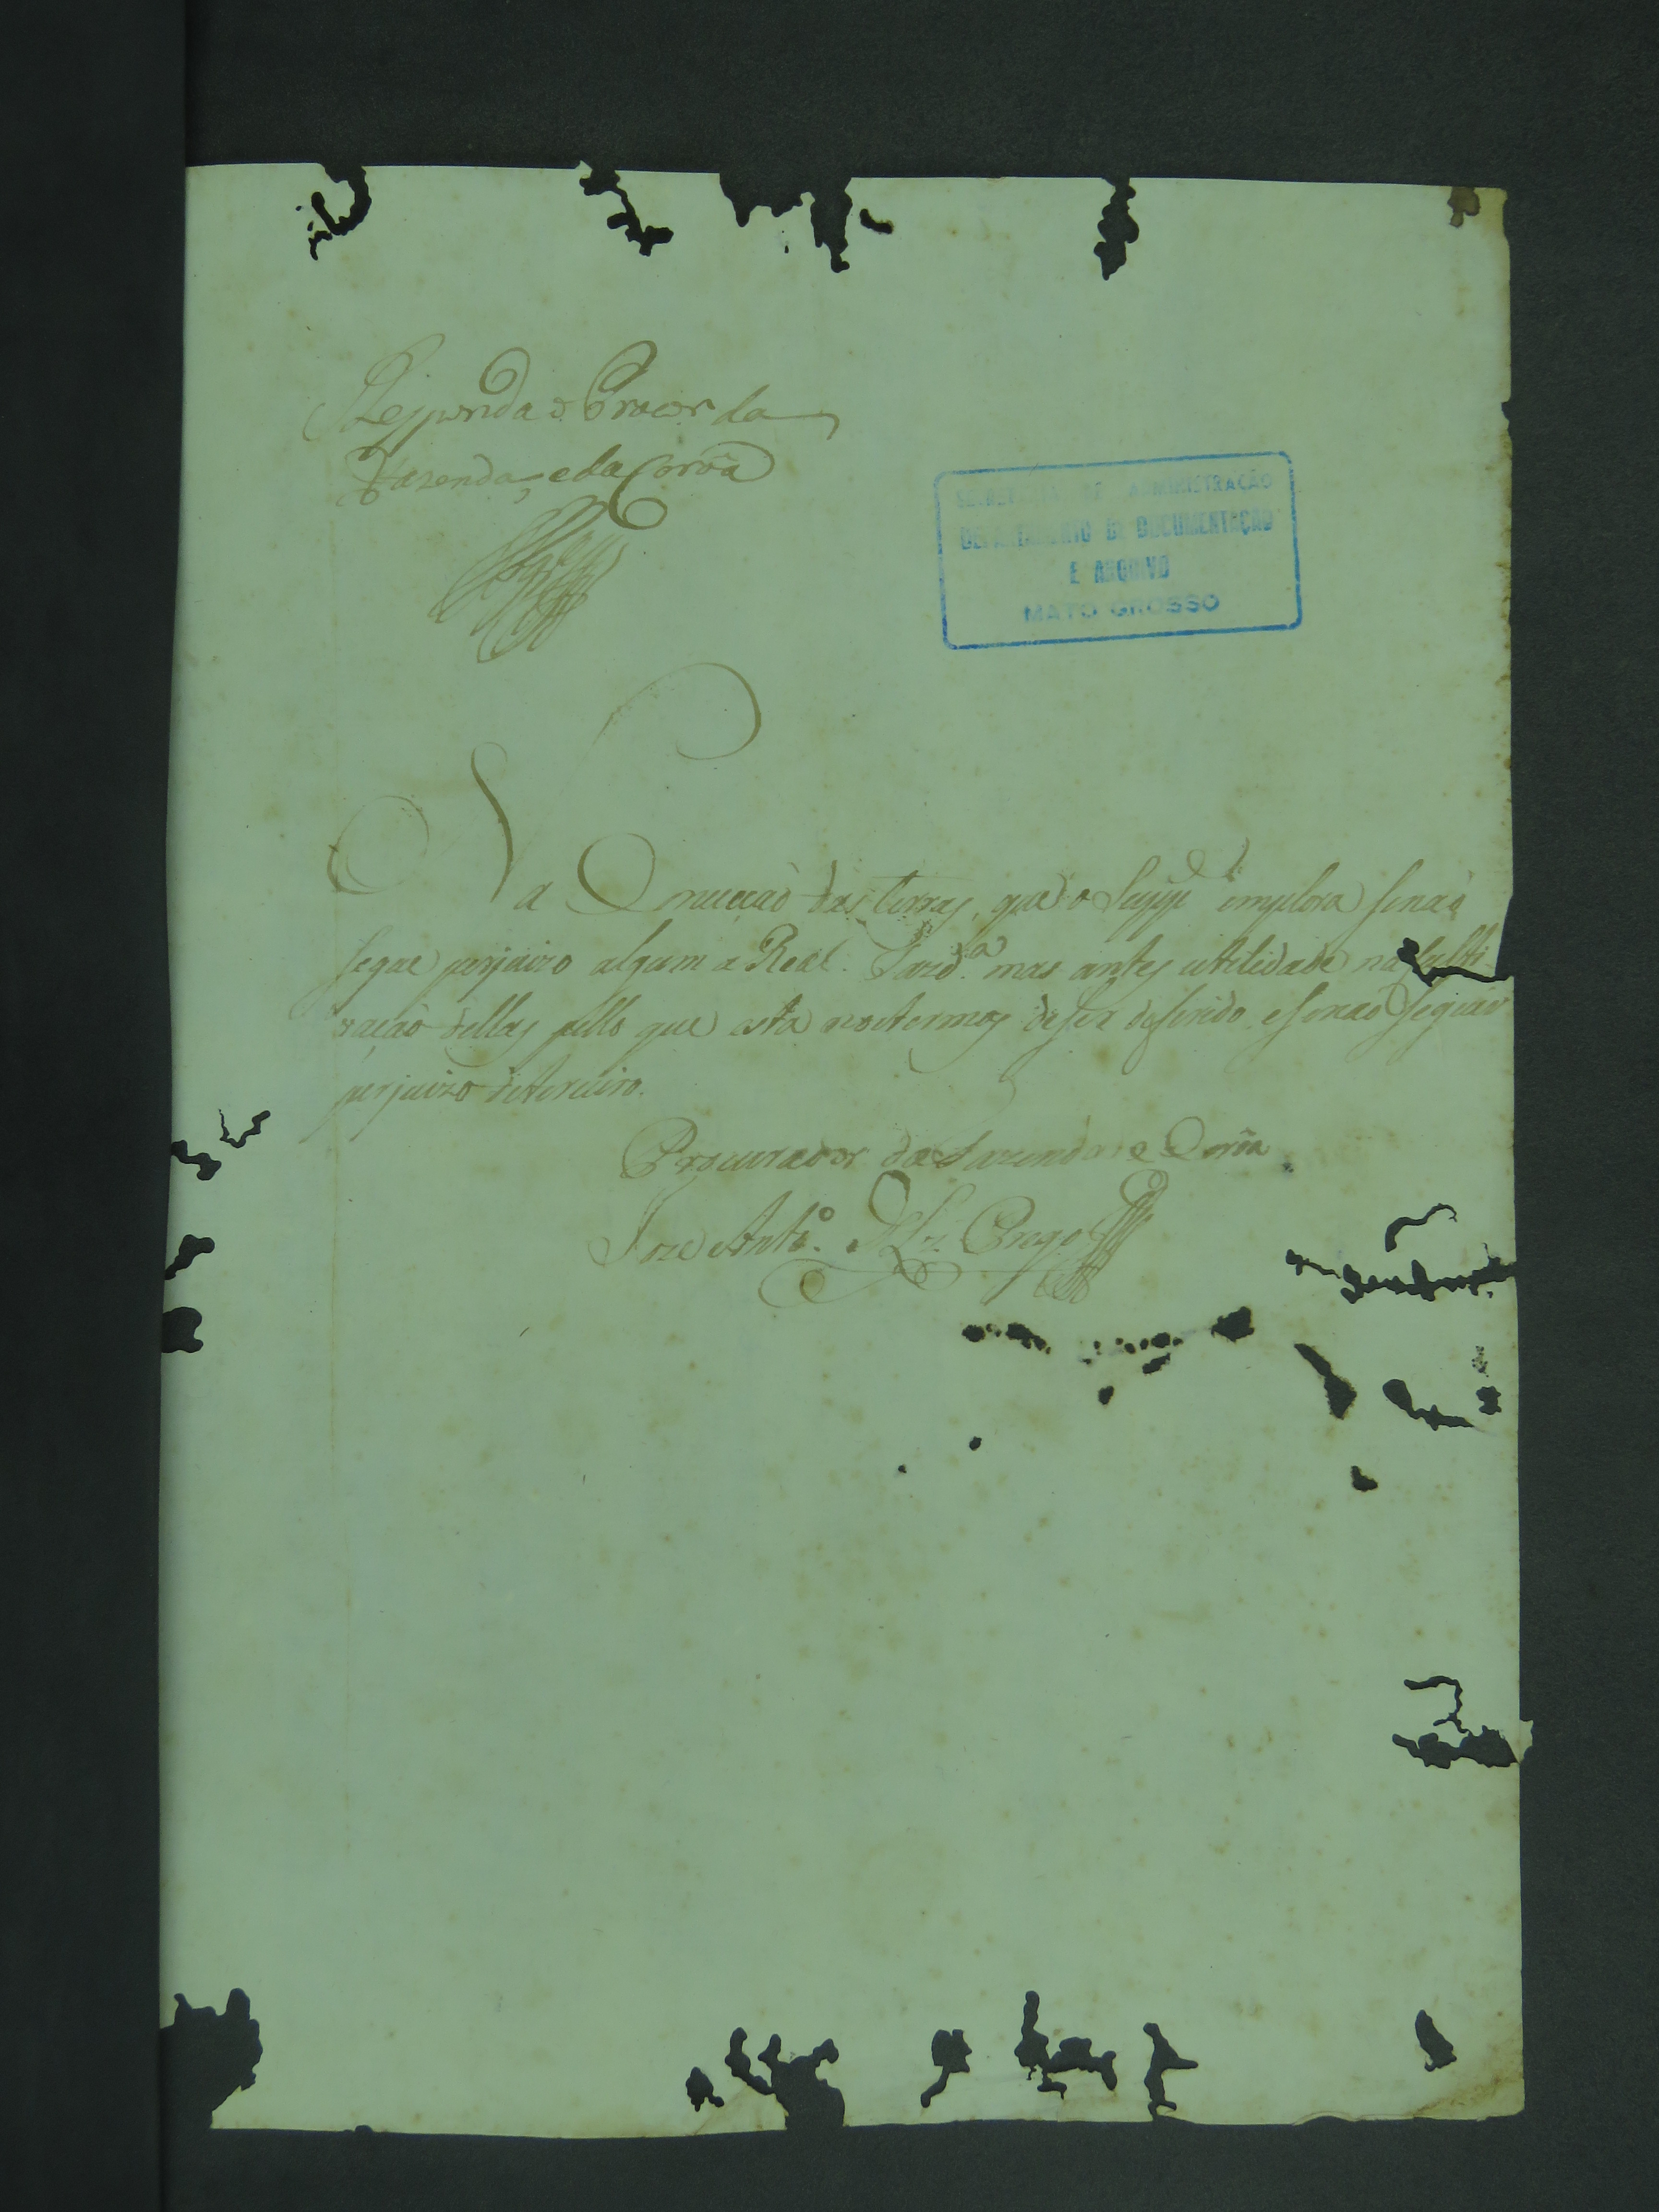 Responda o Procor da
Fazenda, e da Corôa
SECRETARIA DE ADMINISTRAÇÃO
DEPARTAMENTO DE DOCUMENTAÇÃO
E ARQUIVO
MATO GROSSO
Na Concecaõ das terras, que o Supp.e implora senaõ
segue perjuizo algum a Real Fazd.a mas antes utelidade na Culti
vacaõ dellas pello que esta nos termos de ser deferido, e senaõ seguir
perjuizo de terceiro.
Procurador da Fazenda e Corôa
Joze Anto.